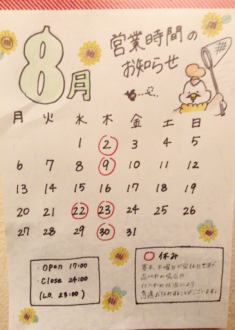 8月
営業時間の
お知らせ
月 火 水 木 金 土 日
1 2 3 4 5
6 7 8 9 10 11 12
13 14 15 16 17 18 19
20 21 22 23 24 25 26
27 28 29 30 31
・Open 17:00
・Close 24:00
(L.O. 23:00)
○ 休み